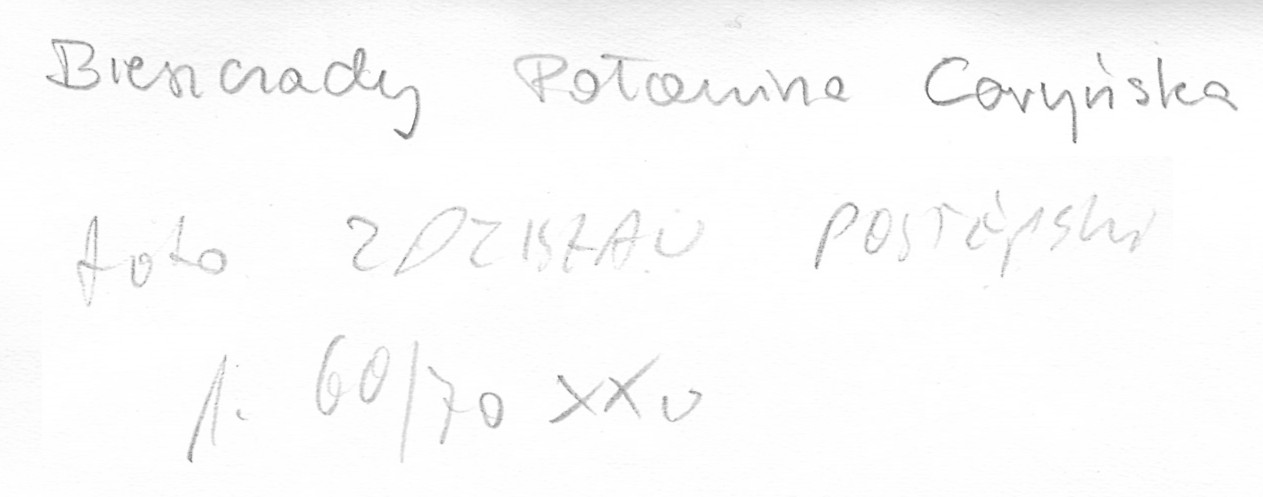 Bieszczady Połonina Caryńska
foto ZDZISŁAW POSTĘPSKI
l. 60/70 XX w